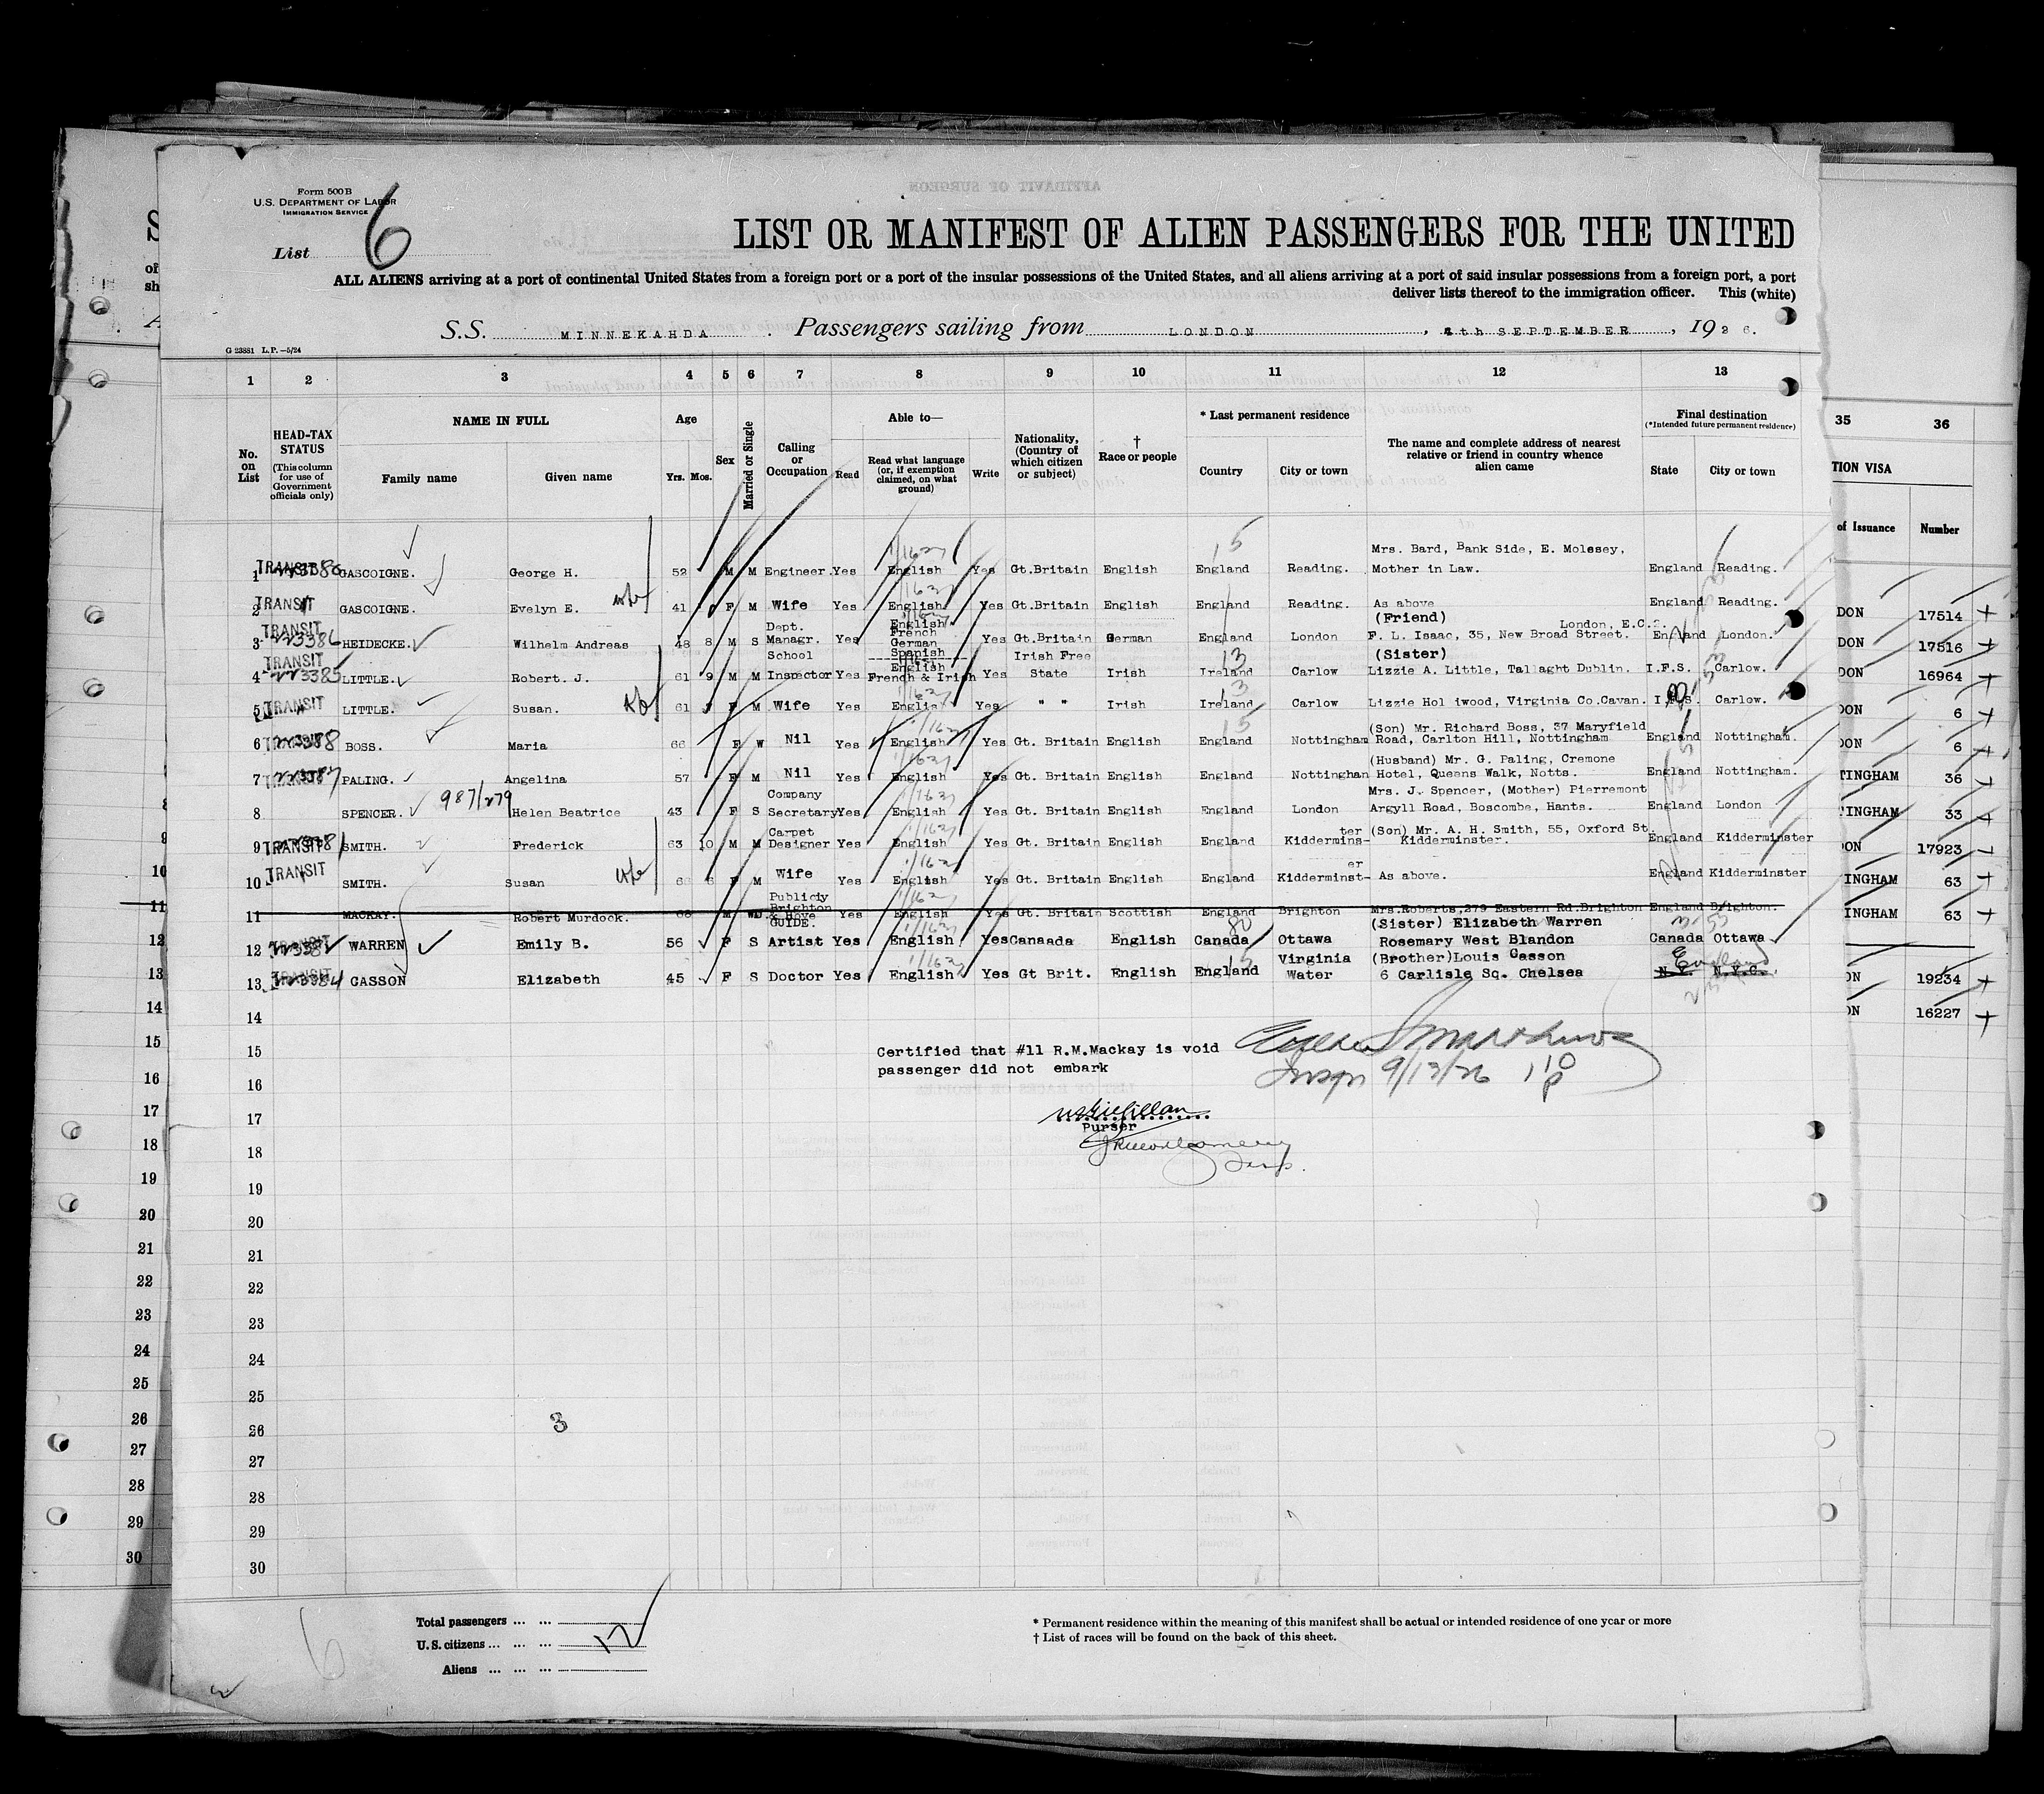 Form 500B
U.S. DEPARTMENT OF LABOR
IMMIGRATION SERVICE
List 6
LIST OR MANIFEST OF ALIEN PASSENGERS FOR THE UNITED
ALL ALIENS arriving at a port of continental United States from a foreign port or a port of the insular possessions of the United States, and all aliens arriving at a port of said insular possessions from a foreign port, a port
deliver lists thereof to the immigration officer. This (white)
S.S. MINNEKAHDA. Passengers sailing from LONDON, 4th SEPTEMBER, 1926.
G 23881 L.P.—5/24
1 2 3 4 5 6 7 8 9 10 11 12 13
No. on List
HEAD-TAX STATUS (This column for use of Government officials only)
NAME IN FULL
Family name
Given name
Age
Yrs. Mos.
Sex
Married or Single
Calling or Occupation
Able to—
Read
Read what language (or, if exemption claimed, on what ground)
Write
Nationality, (Country of which citizen or subject)
† Race or people
* Last permanent residence
Country
City or town
The name and complete address of nearest relative or friend in country whence alien came
Final destination
(*Intended future permanent residence)
State
City or town
35 36
TION VISA
of Issuance Number
1 TRANSIT GASCOIGNE. George H. 52 M M Engineer. Yes English Yes Gt.Britain English England Reading. Mrs. Bard, Bank Side, E. Molesey, Mother in Law. England Reading.
2 TRANSIT GASCOIGNE. Evelyn E. wife 41 F M Wife Yes English Yes Gt.Britain English England Reading. As above England Reading.
3 TRANSIT 223386 HEIDECKE. Wilhelm Andreas 48 8 M S Dept. Managr. Yes English French German Spanish Yes Gt.Britain German England London (Friend) F. L. Isaac, 35, New Broad Street. London, E.C.2. England London.
4 TRANSIT 223385 LITTLE. Robert. J. 61 9 M M School Inspector Yes English French & Irish Yes Irish Free State Irish Ireland Carlow (Sister) Lizzie A. Little, Tallaght Dublin. I.F.S. Carlow.
5 TRANSIT LITTLE. Susan. 61 F M Wife Yes English Yes " " Irish Ireland Carlow Lizzie Hol liwood, Virginia Co.Cavan. I.F.S. Carlow.
6 BOSS. Maria 66 F W Nil Yes English Yes Gt. Britain English England Nottingham (Son) Mr. Richard Boss, 37 Maryfield Road, Carlton Hill, Nottingham England Nottingham.
7 PALING. Angelina 57 F M Nil Yes English Yes Gt. Britain English England Nottingham (Husband) Mr. G. Paling, Cremone Hotel, Queens Walk, Notts. England Nottingham.
8 SPENCER. 987/279 Helen Beatrice 43 F S Company Secretary Yes English Yes Gt. Britain English England London Mrs. J. Spencer, (Mother) Pierremont Argyll Road, Boscombe, Hants. England London
9 TRANSIT SMITH. Frederick 63 10 M M Carpet Designer Yes English Yes Gt. Britain English England Kidderminster (Son) Mr. A. H. Smith, 55, Oxford St. Kidderminster. England Kidderminster
10 TRANSIT SMITH. Susan wife 66 6 F M Wife Yes English Yes Gt. Britain English England Kidderminster As above. England Kidderminster
11 MACKAY. Robert Murdock. 68 M WD. Publicity Brighton & Hove GUIDE. Yes English Yes Gt. Britain Scottish England Brighton Mrs.Roberts,279 Eastern Rd.Brighton England Brighton.
12 TRANSIT WARREN Emily B. 56 F S Artist Yes English Yes Canaada English Canada Ottawa (Sister) Elizabeth Warren Rosemary West Blandon Canada Ottawa
13 TRANSIT 223384 CASSON Elizabeth 45 F S Doctor Yes English Yes Gt Brit. English England Virginia Water (Brother)Louis Casson 6 Carlisle Sq. Chelsea England N.Y. N.Y.C.
14
15
16
17
18
19
20
21
22
23
24
25
26
27
28
29
30
Certified that #11 R.M.Mackay is void
passenger did not embark
Inspr 9/13/26
Purser
Insp.
3
Total passengers ... ...
U.S. citizens ... ... ... 12
Aliens ... ... ...
* Permanent residence within the meaning of this manifest shall be actual or intended residence of one year or more
† List of races will be found on the back of this sheet.
6
DON 17514
DON 17516
DON 16964
DON 6
DON 6
TINGHAM 36
TINGHAM 33
DON 17923
INGHAM 63
INGHAM 63
ON 19234
ON 16227